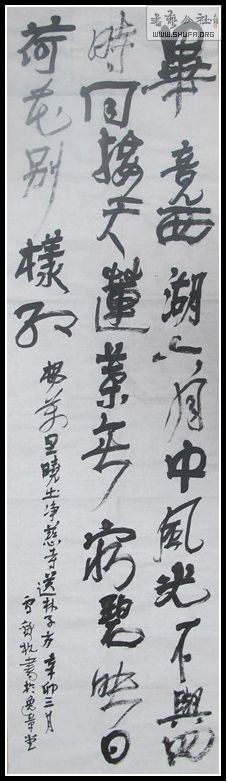 畢竟西湖六月中風光不與四
時同接天蓮葉無窮碧映日
荷花別樣紅
楊萬里曉出净慈寺送林子方辛卯三月
書於
公社
WWW.SHUFA.ORG